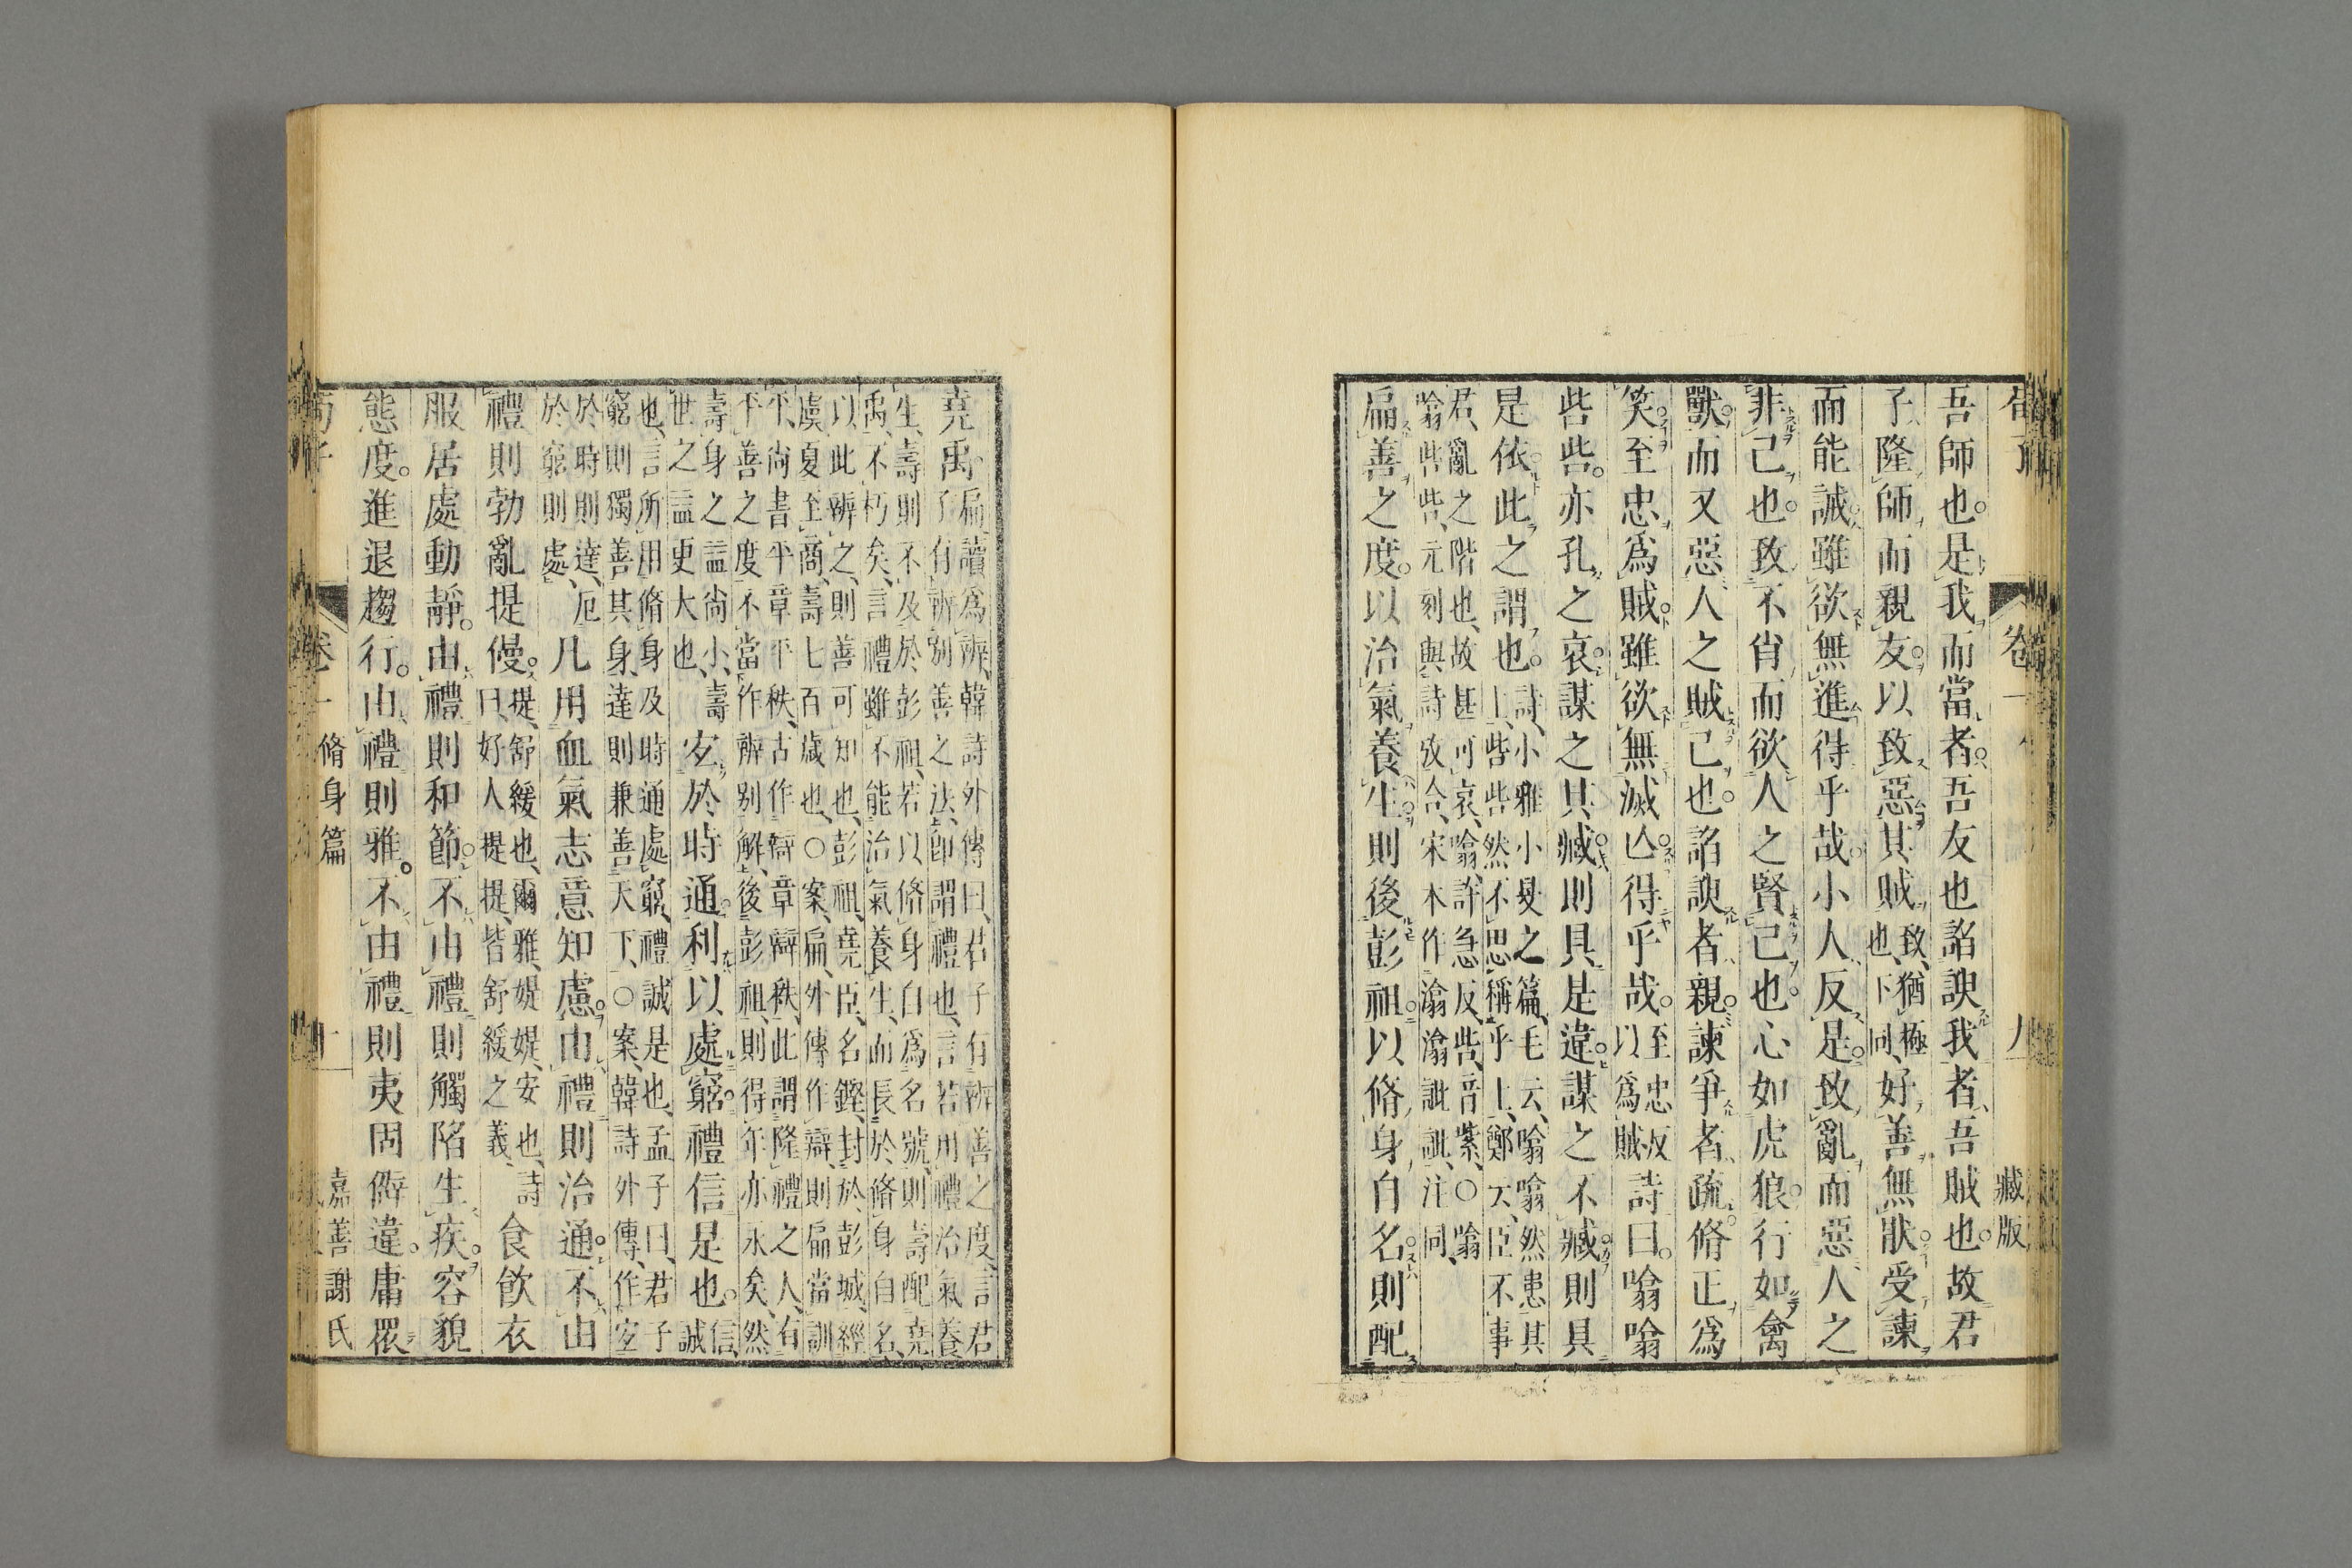 荀子 卷一 九 藏版
吾師也是我而當者吾友也諂諛我者吾賊也故君
子隆師而親友以致惡其賊致猶極也下同好善無猒受諫
而能誡雖欲無進得乎哉小人反是致亂而惡人之
非己也致不肖而欲人之賢己也心如虎狼行如禽
獸而又惡人之賊己也諂諛者親諫爭者疏脩正爲
笑至忠爲賊雖欲無滅亡得乎哉至忠反以爲賊詩曰噏噏
呰呰亦孔之哀謀之其臧則具是違謀之不臧則具
是依此之謂也詩小雅小旻之篇毛云噏噏然患其上呰呰然不思稱乎上鄭云臣不事
君亂之階也故甚可哀噏許急反呰音紫○噏噏呰呰元刻與詩攷合宋本作潝潝訿訿注同
扁善之度以治氣養生則後彭祖以脩身自名則配
堯禹扁讀爲辨韓詩外傳曰君子有辨善之度言君子有辨別善之法卽謂禮也言若用禮治氣養
生壽則不及於彭祖若以脩身自爲名號則壽配堯禹不朽矣言禮雖不能治氣養生而長於脩身自名
以此辨之則善可知也彭祖堯臣名鏗封於彭城經虞夏至商壽七百歲也○案扁外傳作辯則扁當訓
平尚書平章平秩古作辯章辯秩此謂隆禮之人有平善之度不當作辨别解後彭祖則得年亦永矣然
壽身之謚尚小壽世之謚更大也宐於時通利以處窮禮信是也信誠
也言所用脩身及時通處窮禮誠是也孟子曰君子窮則獨善其身達則兼善天下○案韓詩外傳作宐
於時則達厄於窮則處凡用血氣志意知慮由禮則治通不由
禮則勃亂提僈提舒緩也爾雅媞媞安也詩曰好人提提皆舒緩之義食飲衣
服居處動靜由禮則和節不由禮則觸陷生疾容貌
態度進退趨行由禮則雅不由禮則夷固僻違庸衆
荀子 卷一 脩身篇 十 嘉善謝氏